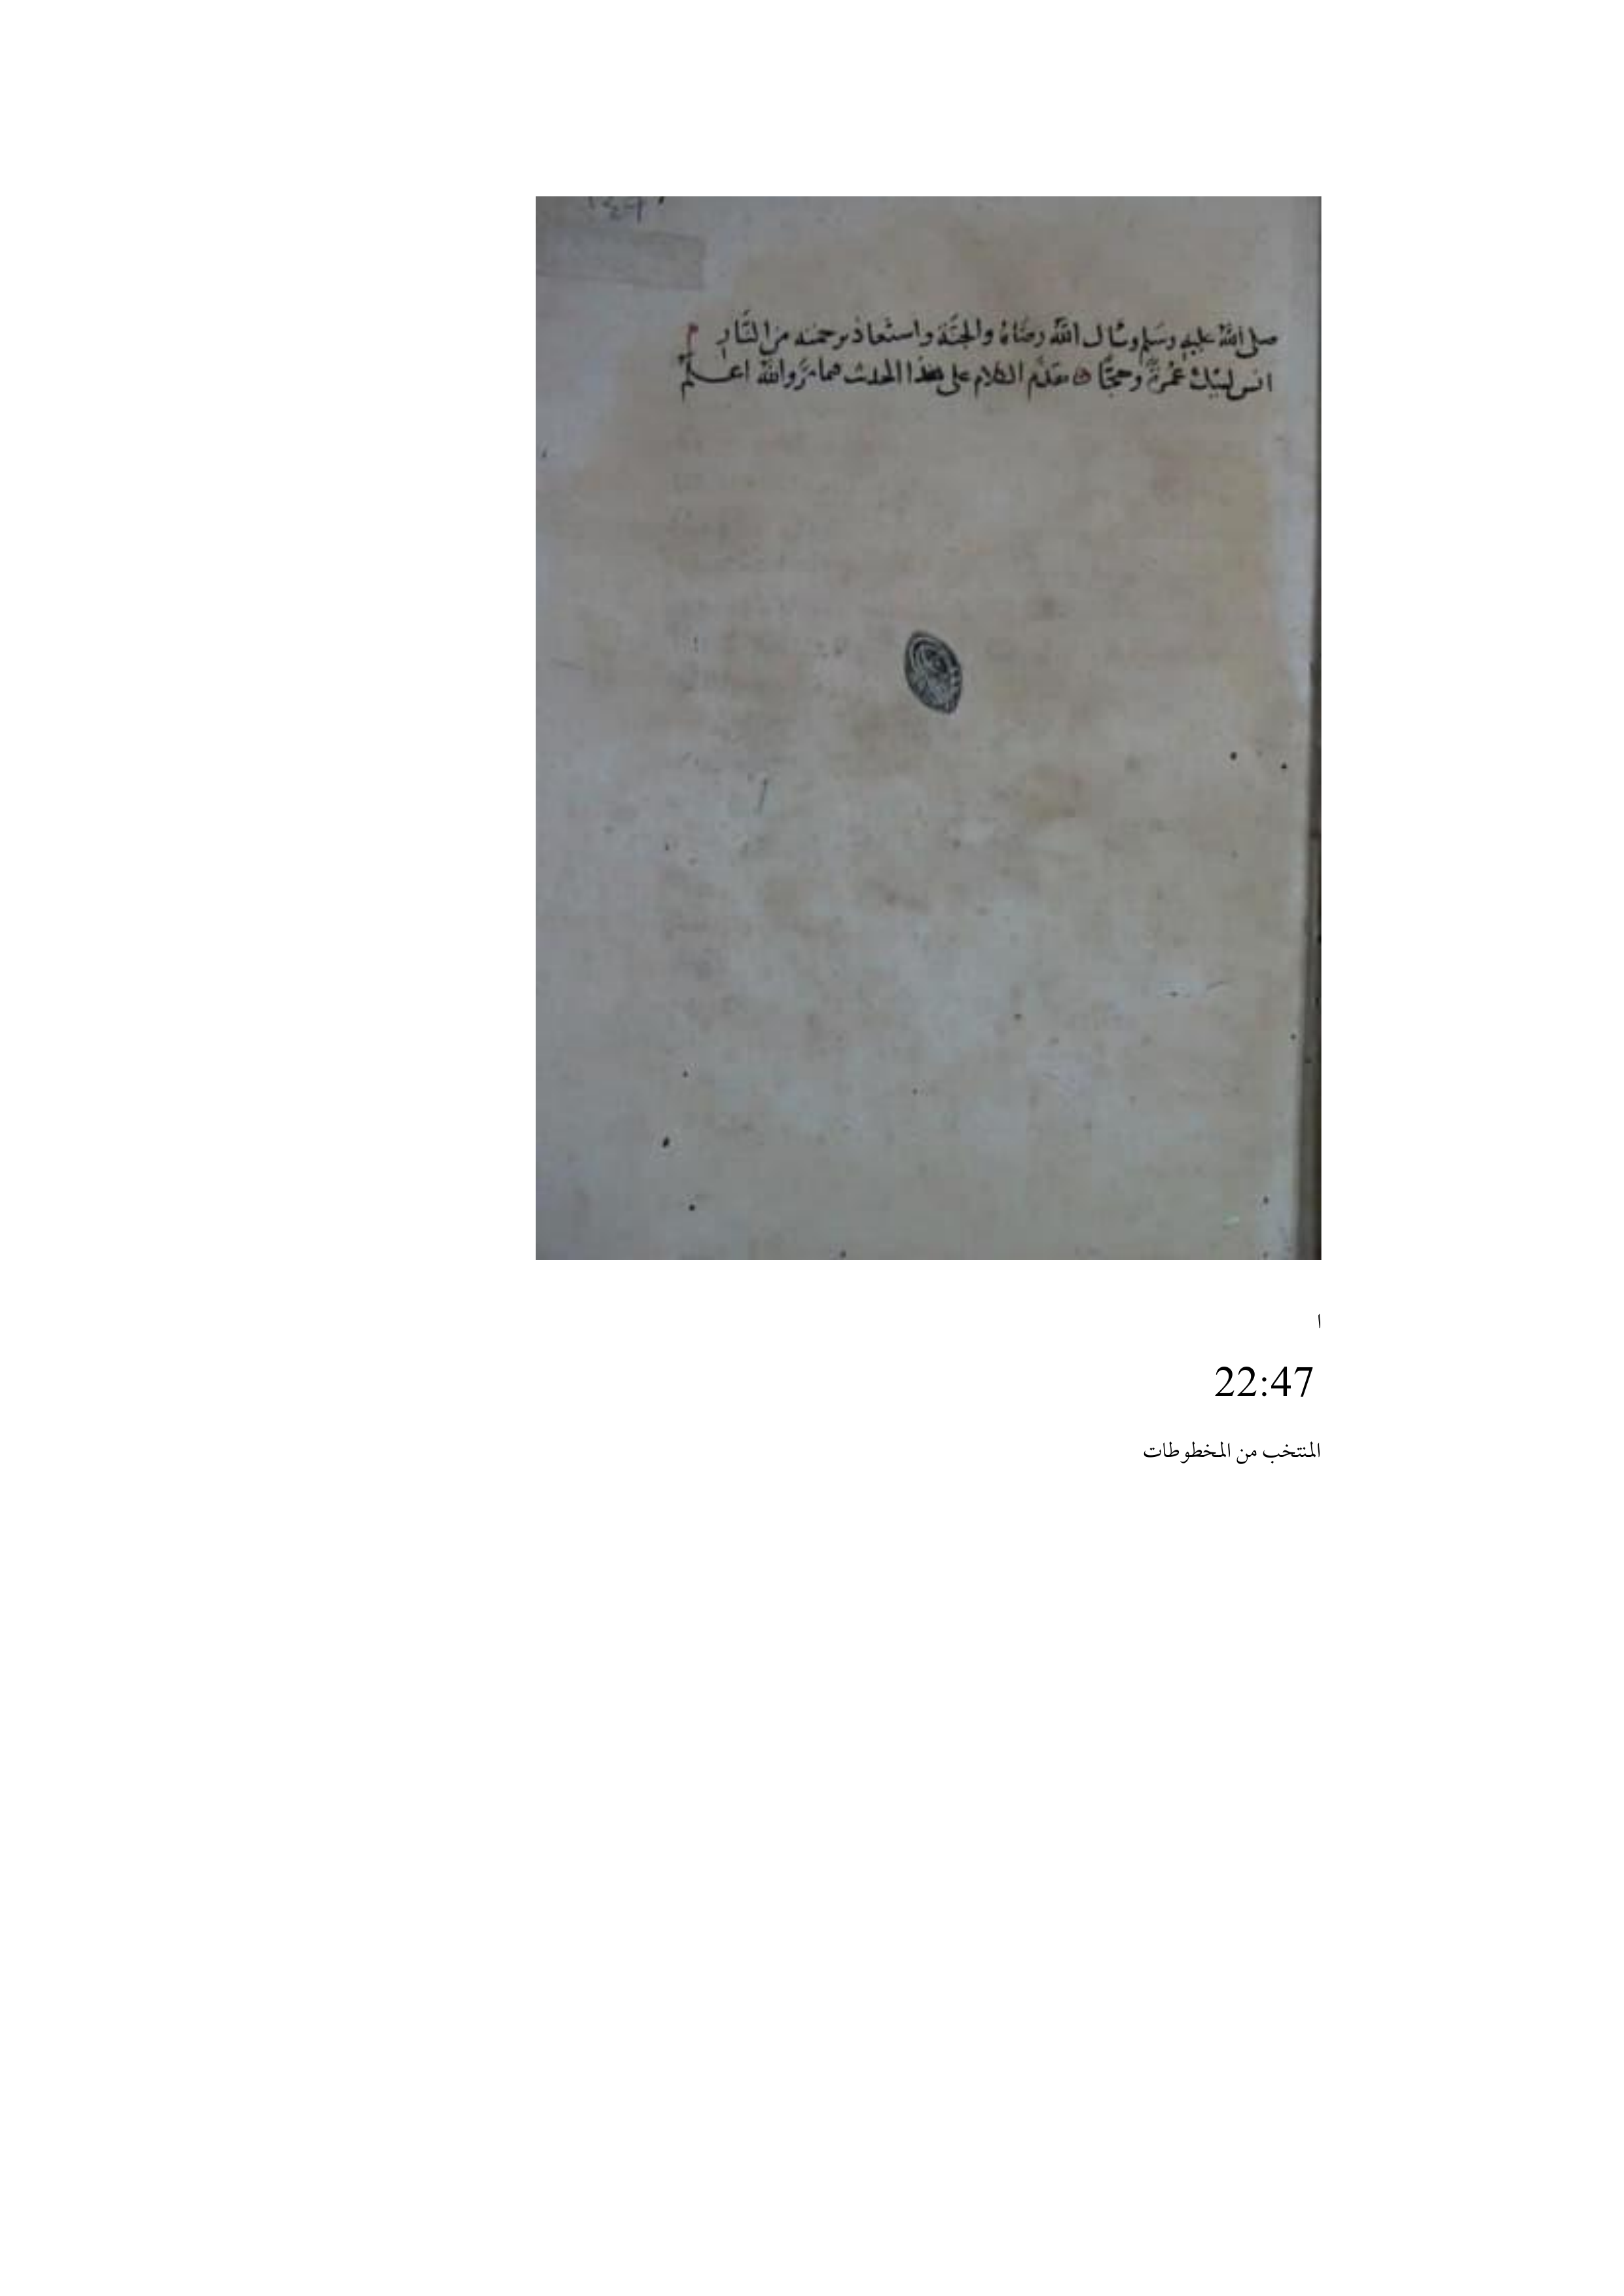 صلى الله عليه وسَلم وسَال الله رضَاهُ والجنَّة واستعاذ برحمته من النَّار م
انس لبيك عُمْرَةً وحجًّا ه تقدَّم الكلام على هذا الحدث فما مرَّ والله اعلم
ا
22:47
المنتخب من المخطوطات